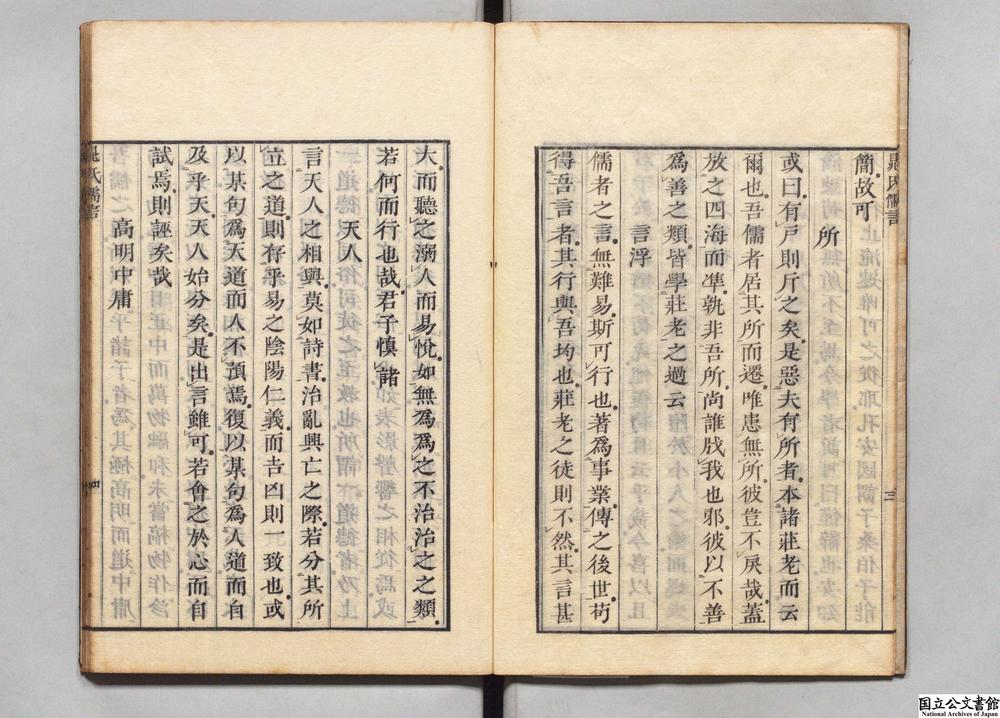 晁氏儒言
三
簡故可
所
或曰有戶則斤之矣是惡夫有所者本諸莊老而云
爾也吾儒者居其所而遷唯患無所彼豈不戾哉蓋
放之四海而準孰非吾所尚誰戕我也邪彼以不善
爲善之類皆學莊老之過云
言浮
儒者之言無難易斯可行也著爲事業傳之後世苟
得吾言者其行與吾均也莊老之徒則不然其言甚
大而聽之溺人而易悅如無爲爲之不治治之之類
若何而行也哉君子愼諸
天人
言天人之相與莫如詩書治亂興亡之際若分其所
立之道則存乎易之陰陽仁義而吉凶則一致也或
以某句爲天道而人不預焉復以某句爲人道而自
及乎天天人始分矣是出言雖可若會之於心而自
試焉則誣矣哉
高明中庸
晁氏儒言
四
国立公文書館
National Archives of Japan